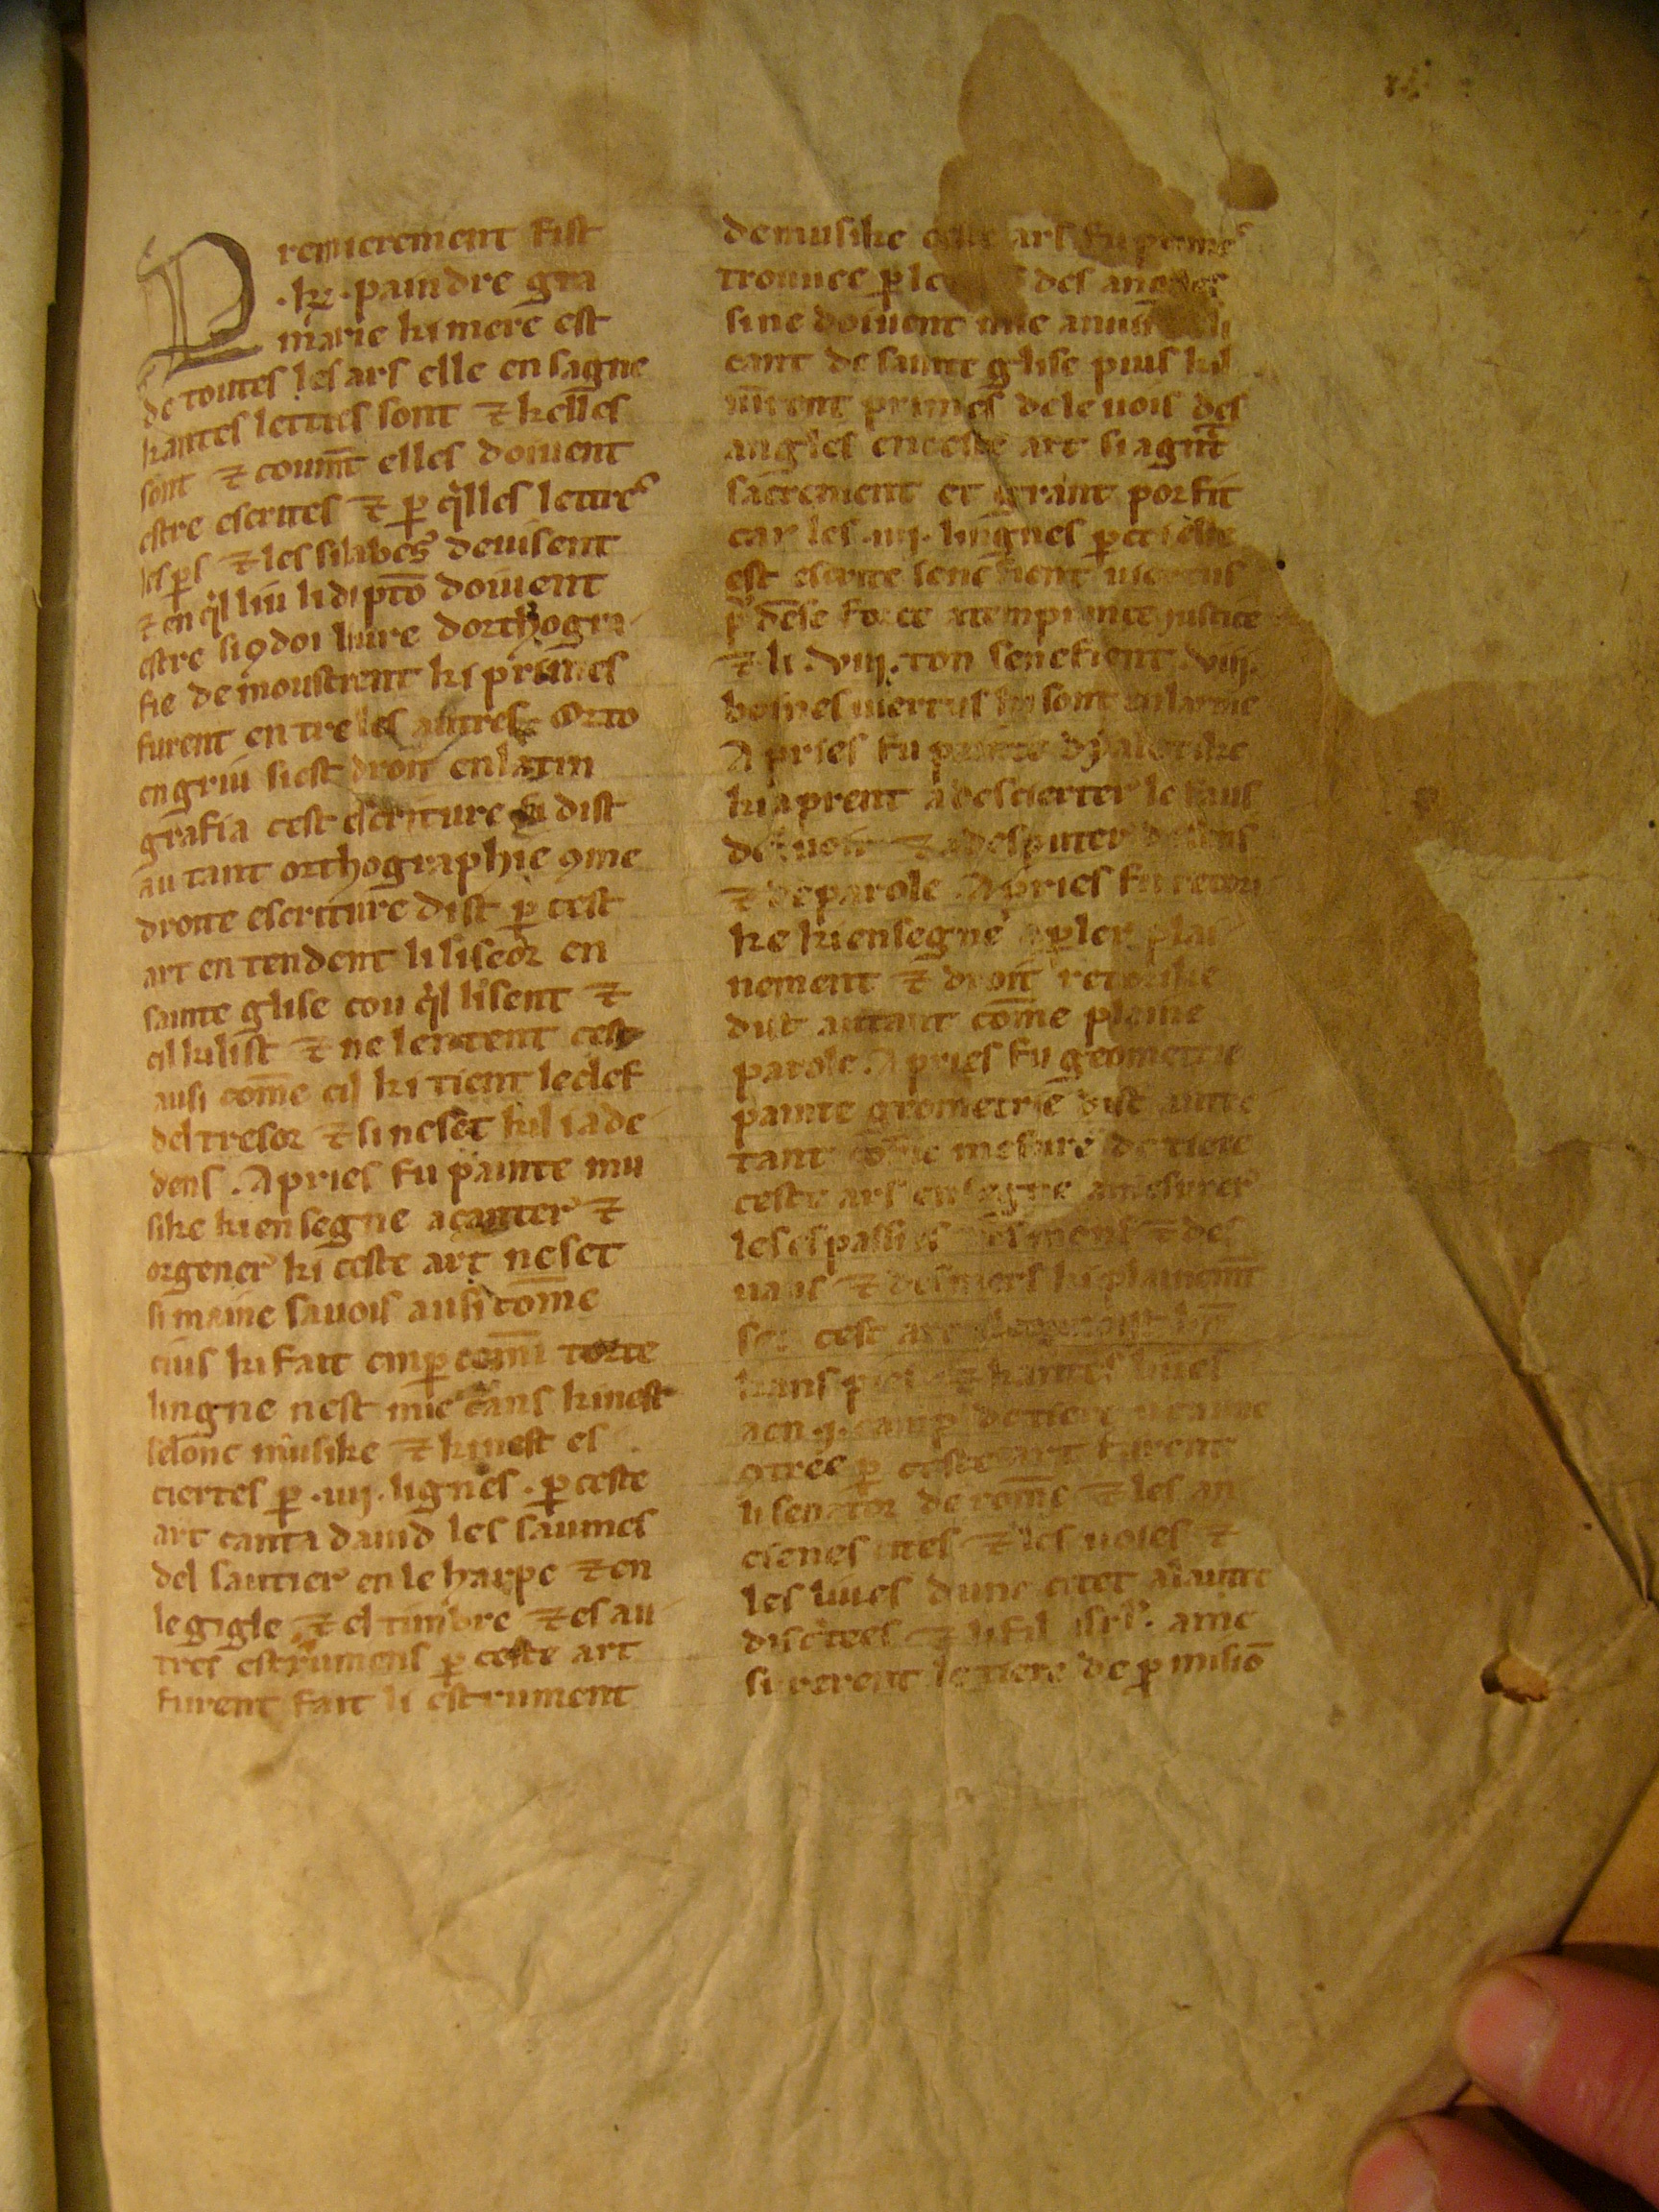 Premierement fist
.k̄. paindre gra
marie ki mere est
de toutes les ars elle ensagne
kantes lettres sont ⁊ kelles
sont ⁊ coum̄t elles doiuent
estre escrites ⁊ ꝑ q̉lles lettres
les ꝑs ⁊ les silabes deuisent
⁊ en q̉l liu li diptō doiuent
estre si ꝯ doi liure dorthogra
fie demoustrent ki primes
furent entre les autres. Orto
en griu siest droit en latin
grafia cest escriture si dist
autant orthographie ꝯme
droite escriture dist ꝑ cest
art entendent li liseor en
sainte glise cou q̉l lisent ⁊
cil ki list ⁊ ne lentent cest
ausi com̄e cil ki tient le clef
del tresor ⁊ si ne set kil i a de
dens. Apries fu painte mu
sike ki ensegne a canter ⁊
orgener ki ceste art ne set
si maine sa uois ausi com̄e
cius ki fait torte
lingne nest mie cans ki nest
selonc musike ⁊ ki nest es
ciertes ꝑ .iiij. lignes. ꝑ ceste
art canta dauid les saumes
del sautier en le harpe ⁊ en
le gigle ⁊ el timbre ⁊ es au
tres estrumens ꝑ ceste art
furent fait li estrument
de musike ceste ars fu
trouuee ꝑ le des
si ne doiuent mie
cant de sainte glise puis kil
primes de le uois des
angles en ceste art si a gnt
sacrement et grant porfit
car les .iiij. lingnes ꝑ
est escrite senefient uiertus
force atemprance iustice
⁊ li .viij. ton senefient .viij.
boines uiertus ki sont en larme
Apries fu painte dyaletike
ki aprent a descierter le faus
del uoir ⁊ a desputer de sens
⁊ de parole. Apries fu retori
ke ki ensegne a ꝑler plai
nement ⁊ droit retorike
dist autant com̄e plaine
parole. Apries fu geometrie
painte geometrie dist autre
tant com̄e mesure de tiere
ceste ars ensegne a mesurer
les espasses des mons ⁊ des
uaus ⁊ des mers ki plainem̄t
set cest art
kans pies ⁊ kantes liues
a en .j. camp de tiere u en une
ꝯtree ꝑ ceste art furent
li senator de rome ⁊ les an
cienes cites ⁊ les uoies ⁊
les liues dune citet a lautre
⁊ li fil isrl. ame
surerent le tiere de ꝓmisiō